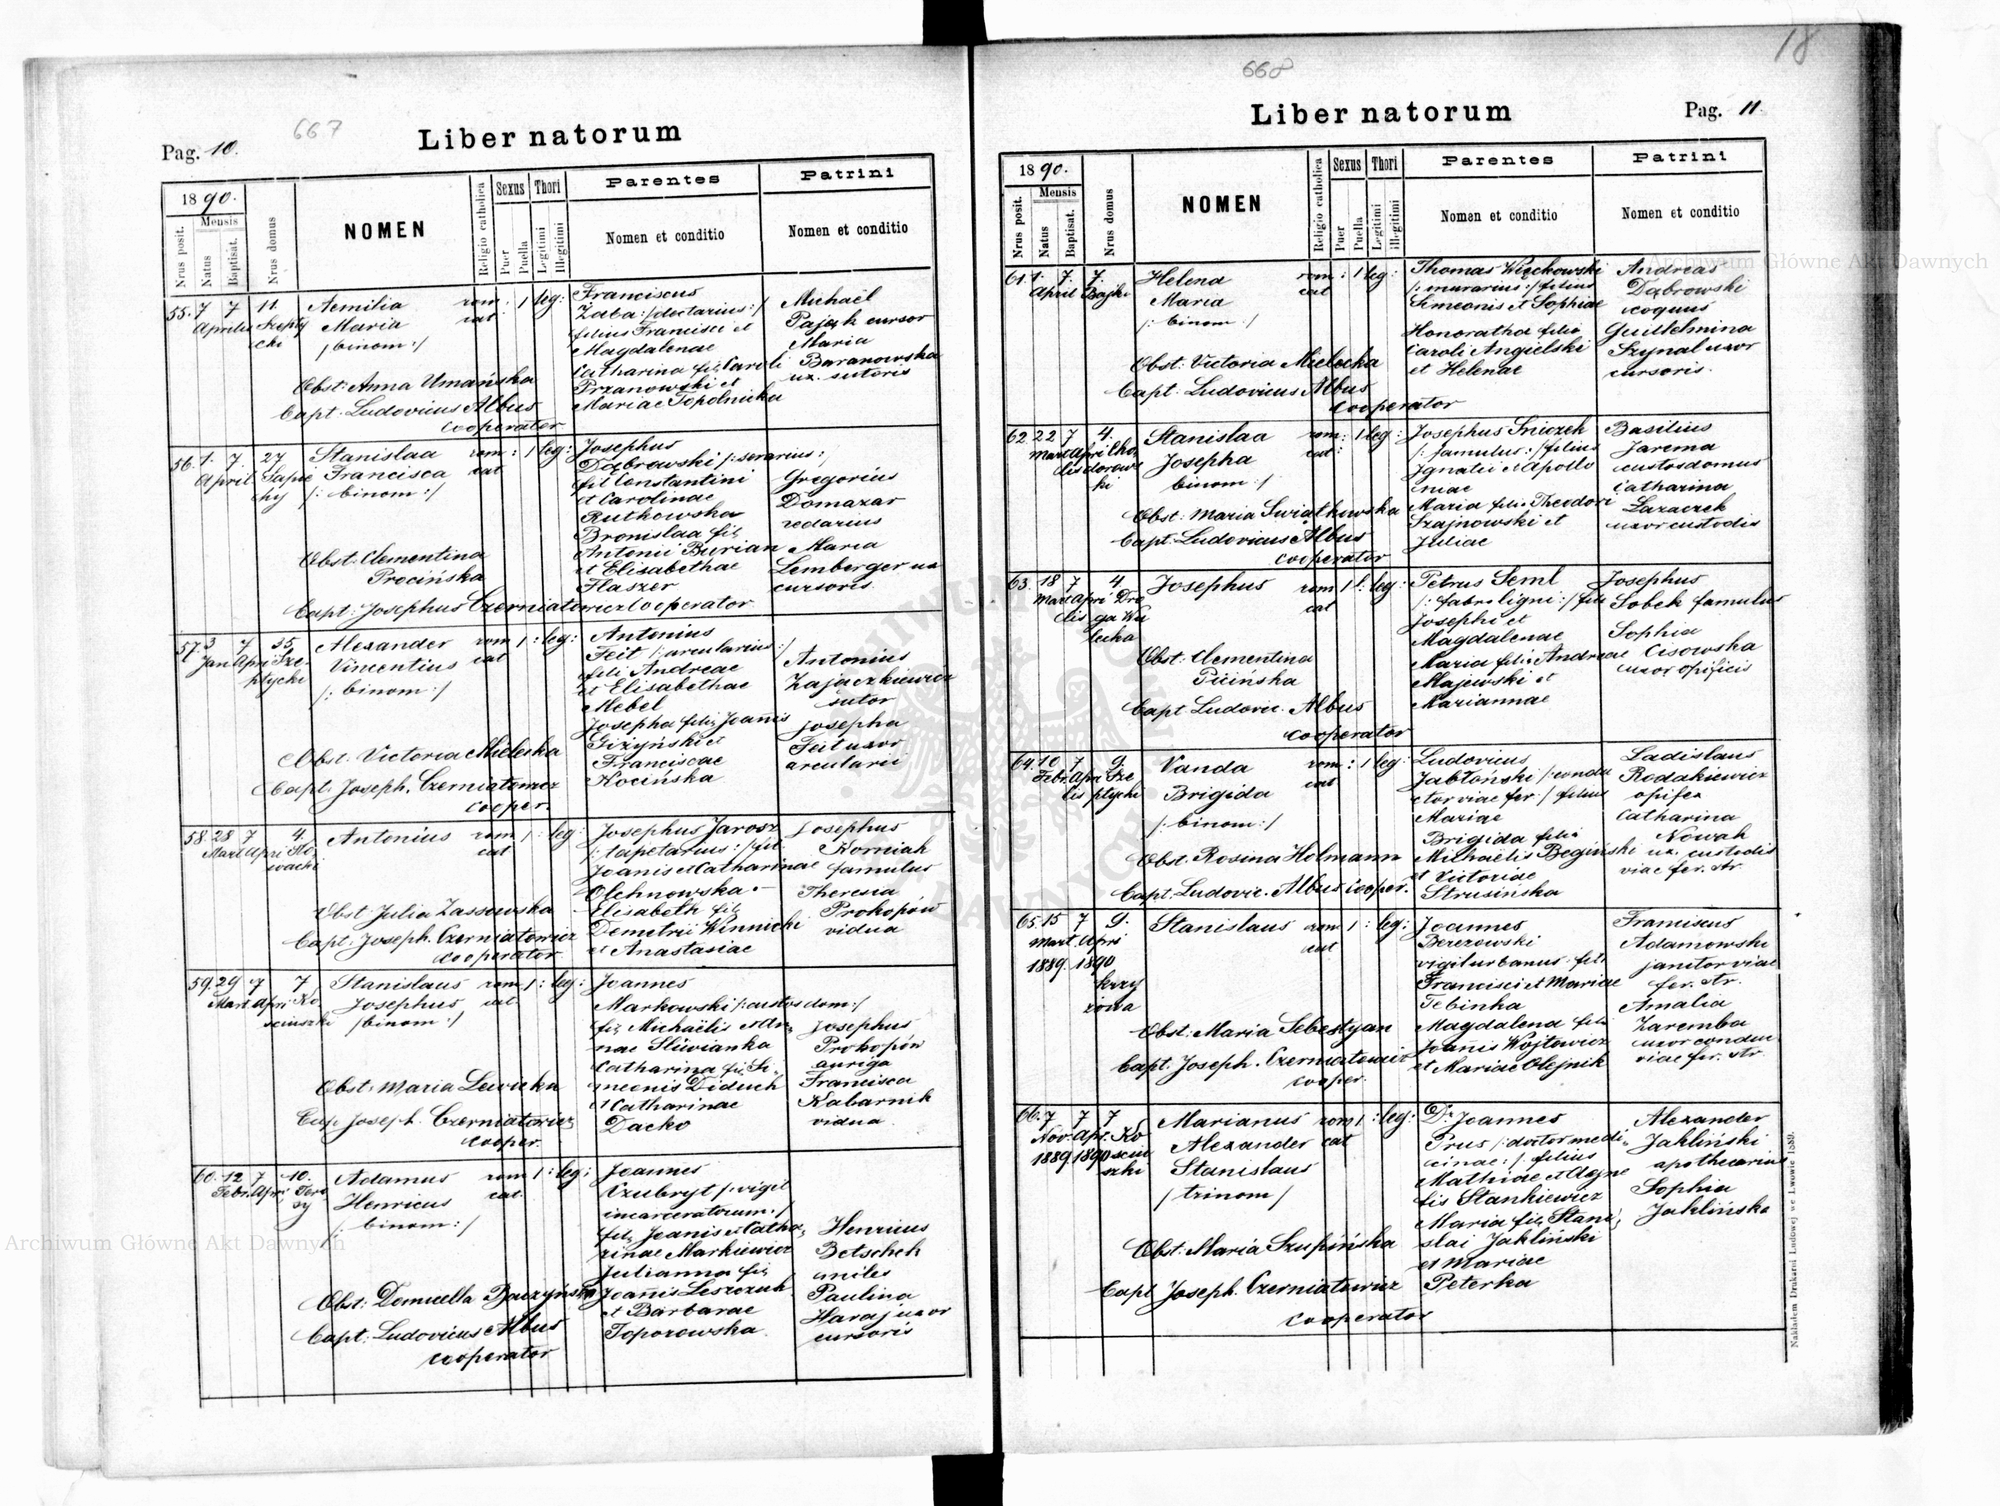 667
Pag. 10.
Liber natorum
1890.
Mensis
Nrus posit.
Natus
Baptisat.
Nrus domus
NOMEN
Religio catholica
Sexus
Puer
Puella
Thori
Legitimi
Illegitimi
Parentes
Nomen et conditio
Patrini
Nomen et conditio
55. 7 7 11. Aemilia rom : 1 leg: Franciscus Michaël
Aprilis Szepty Maria cat Żaba Pająk cursor
cki /binom:/ filius Francisci et Maria
Magdalenae Baranowska
Catharina fil. Caroli ux. sutoris
Obst: Anna Umańska Przanowski et
Capt. Ludovicus Albus Mariae Topolnicka
cooperator
56. 1. 7. 27 Stanislaa rom : 1 leg: Josephus
April Sapie Francisca cat Dąbrowski /: serarius :/
hy /: binom :/ fil Constantini Gregorius
et Carolinae Domazar
Rutkowska redarius
Bronislaa fil. Maria
Obst: Clementina Antonii Burian Lemberger ux
Procińska et Elisabethae cursoris.
Flaszer
Capt: Josephus Czerniatowicz Cooperator
57. 3 7 35 Alexander rom 1 : leg: Antonius
Jan Apri Sze- Vincentius cat Feit /: arcularius :/
ptycki /: binom :/ fili Andreae Antonius
et Elisabethae Zajączkiewicz
Mebel sutor
Josepha filia Joanis Josepha
Obst. Victoria Mielecka Giżyński et Feit uxor
Franciscae arcularii
Capt. Joseph. Czerniatowicz Kocińska
cooper.
58. 28 7 4. Antonius rom 1 : leg: Josephus Jarosz Josephus
Mart Apri No- cat /: tapetarius :/ fil. Korniak
wacki Joanis et Catharinae famulus
Olchnowska - Theresia
Obst Julia Zassowska Elisabeth fil. Prokopów
Capt. Joseph. Czerniatowicz Demetrii Winnicki vidua
cooperator et Anastasiae
59. 29 7 7 Stanislaus rom 1 : leg: Joannes
Mart Apri Ko Josephus cat Markowski /: custos dom :/
sciuszki /binom :/ fil. Michaëlis et An- Josephus
nae Sliwianka Prokopón
Catharina fil. Si- auriga
Obst: Maria Lewicka meonis Diduch Francisca
et Catharinae Kabarnik
Cap. Joseph. Czerniatowicz Dacko vidua
cooper.
60. 12 7 10. Adamus rom 1 : leg: Joannes
Febr. Apri Henricus cat. Czubryt /: vigil
/: binom :/ incarceratorum :/
fil. Joanis et Catha- Henricus
rinae Markiewicz Betschek
Julianna fil. miles
Obst: Joanis Leszczuk Paulina
et Barbarae Haraj uxor
Capt: Ludovicus Albus Toporowska cursoris
cooperator
18
668
Liber natorum
Pag. 11.
1890.
Mensis
Nrus posit.
Natus
Baptisat.
Nrus domus
NOMEN
Religio catholica
Sexus
Puer
Puella
Thori
Legitimi
illegitimi
Parentes
Nomen et conditio
Patrini
Nomen et conditio
61. 1. 7. 7. Helena rom : 1 leg: Thomas Więckowski Andreas
April Bajki Maria cat /: murarius :/ filius Dąbrowski
/: binom :/ Simeonis et Sophiae coquus
Honoratha filia Guilhelmina
Obst: Victoria Mielecka Caroli Angielski Szynal uxor
Capt. Ludovicus Albus et Helenae cursoris.
cooperator
62. 22 7 4. Stanislaa rom : 1 leg: Josephus Sniczek Basilius
Mart Apri Cho Josepha cat /: famulus :/ filius Jarema
lis dorows binom :/ Ignatii et Apollo custos domus
ki niae Catharina
Obst: Maria Swiatkowska Maria filia Theodori Lazaczek
Capt. Ludovicus Albus Szajnowski et uxor custodis
cooperator Juliae
63. 18 7 4. Josephus rom 1 : leg: Petrus Seml Josephus
Mart Apri Dro cat /: fabr. ligni :/ fil Sobek famulus
lis ga Wu Josephi et Sophia
lecka Magdalenae Cisowska
Obst: Clementina Maria filia Andreae uxor opificis
Picińska Majewski et
Capt Ludovic. Albus Mariannae
cooperator
64. 10 7 9. Vanda rom : 1 leg: Ludovicus Ladislaus
Febr. Apri Sze Brigida cat Jabłoński /: condu Rodakiewicz
lis ptycki /: binom :/ ctor viae fer :/ filius opifex
Mariae Catharina
Obst: Rosina Holmann Brigida filia Nowak
Michaëlis Begiński ux. custodis
Capt: Ludovic. Albus cooper. et Victoriae viae fer. str.
Strusińska
65. 15 7 9. Stanislaus rom 1 : leg: Joannes Franciscus
Mart. Apri cat Berezowski Adamowski
1889. 1890 vigil urbanus fil. janitor viae
krzy Francisci et Mariae fer. str.
żowa Tebinka Amalia
Obst: Maria Sebestyan Magdalena fili Zaremba
Capt. Joseph. Czerniatowicz Joanis Wojtowicz uxor conduc
cooper. et Mariae Olejnik viae fer. str.
66. 7 7 7 Marianus rom 1 : leg: Dr. Joannes Alexander
Nov. Apr. Ko Alexander cat Prus /: doctor medi- Jakliński
1889. 1890 sciu Stanislaus cinae :/ filius apothecarius
szki /trinom/ Mathiae et Agne Sophia
tis Stankiewicz Jaklińska
Maria fil. Stani-
Obst: Maria Szupińska slai Jakliński
et Mariae
Capt Joseph. Czerniatowicz Peterka
cooperator
Nakładem Drukarni Ludowej we Lwowie 1889.
Archiwum Główne Akt Dawnych
Archiwum Główne Akt Dawnych